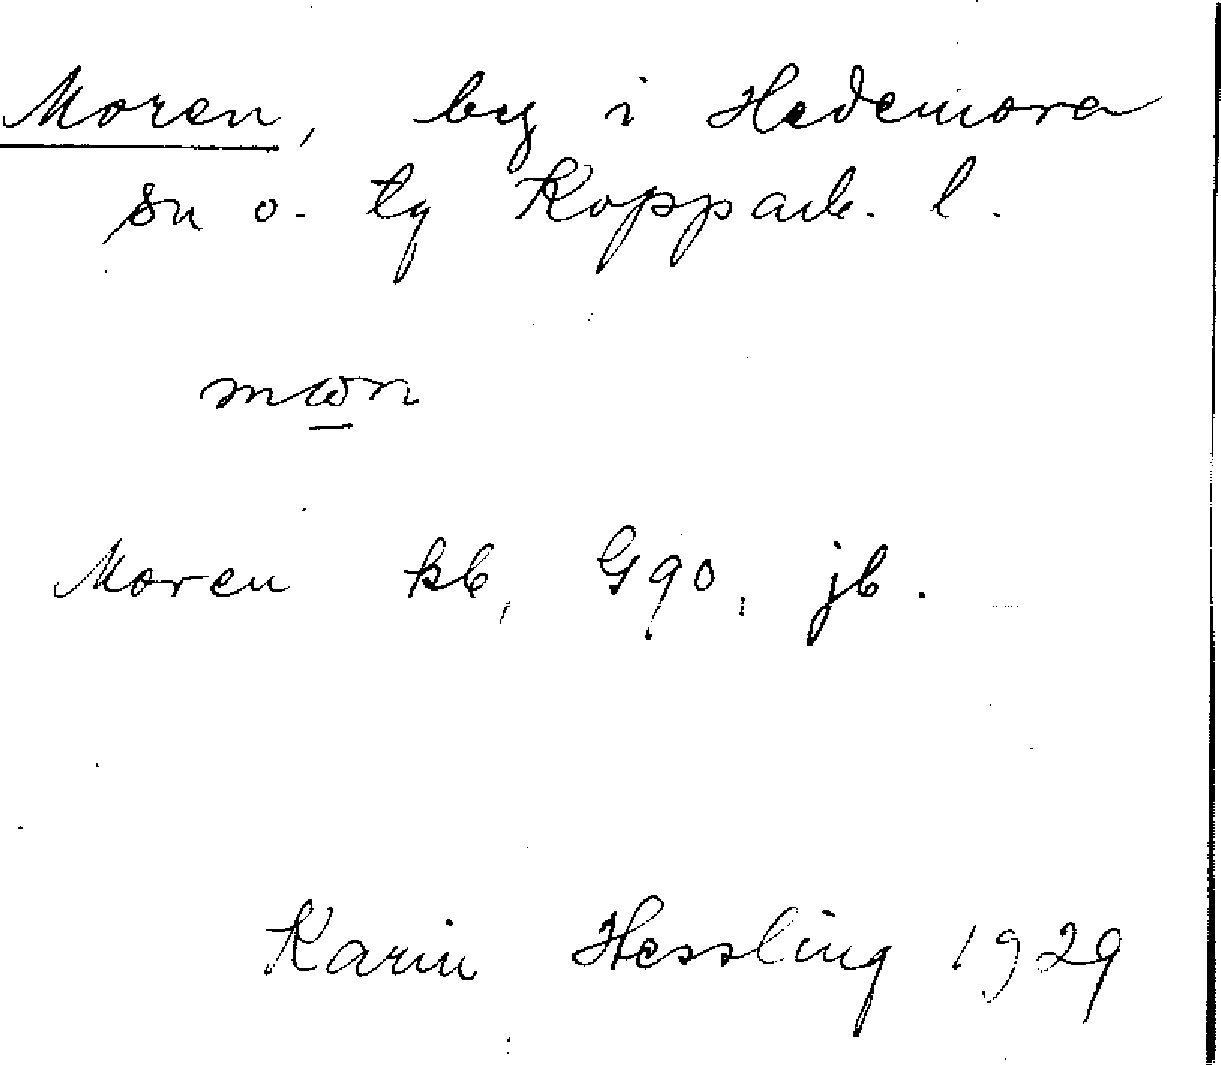 Moren, by i Hedemora
sn o. tg Kopparb. l.
mωn
Moren kb, G90, jb.
Karin Hessling 1929